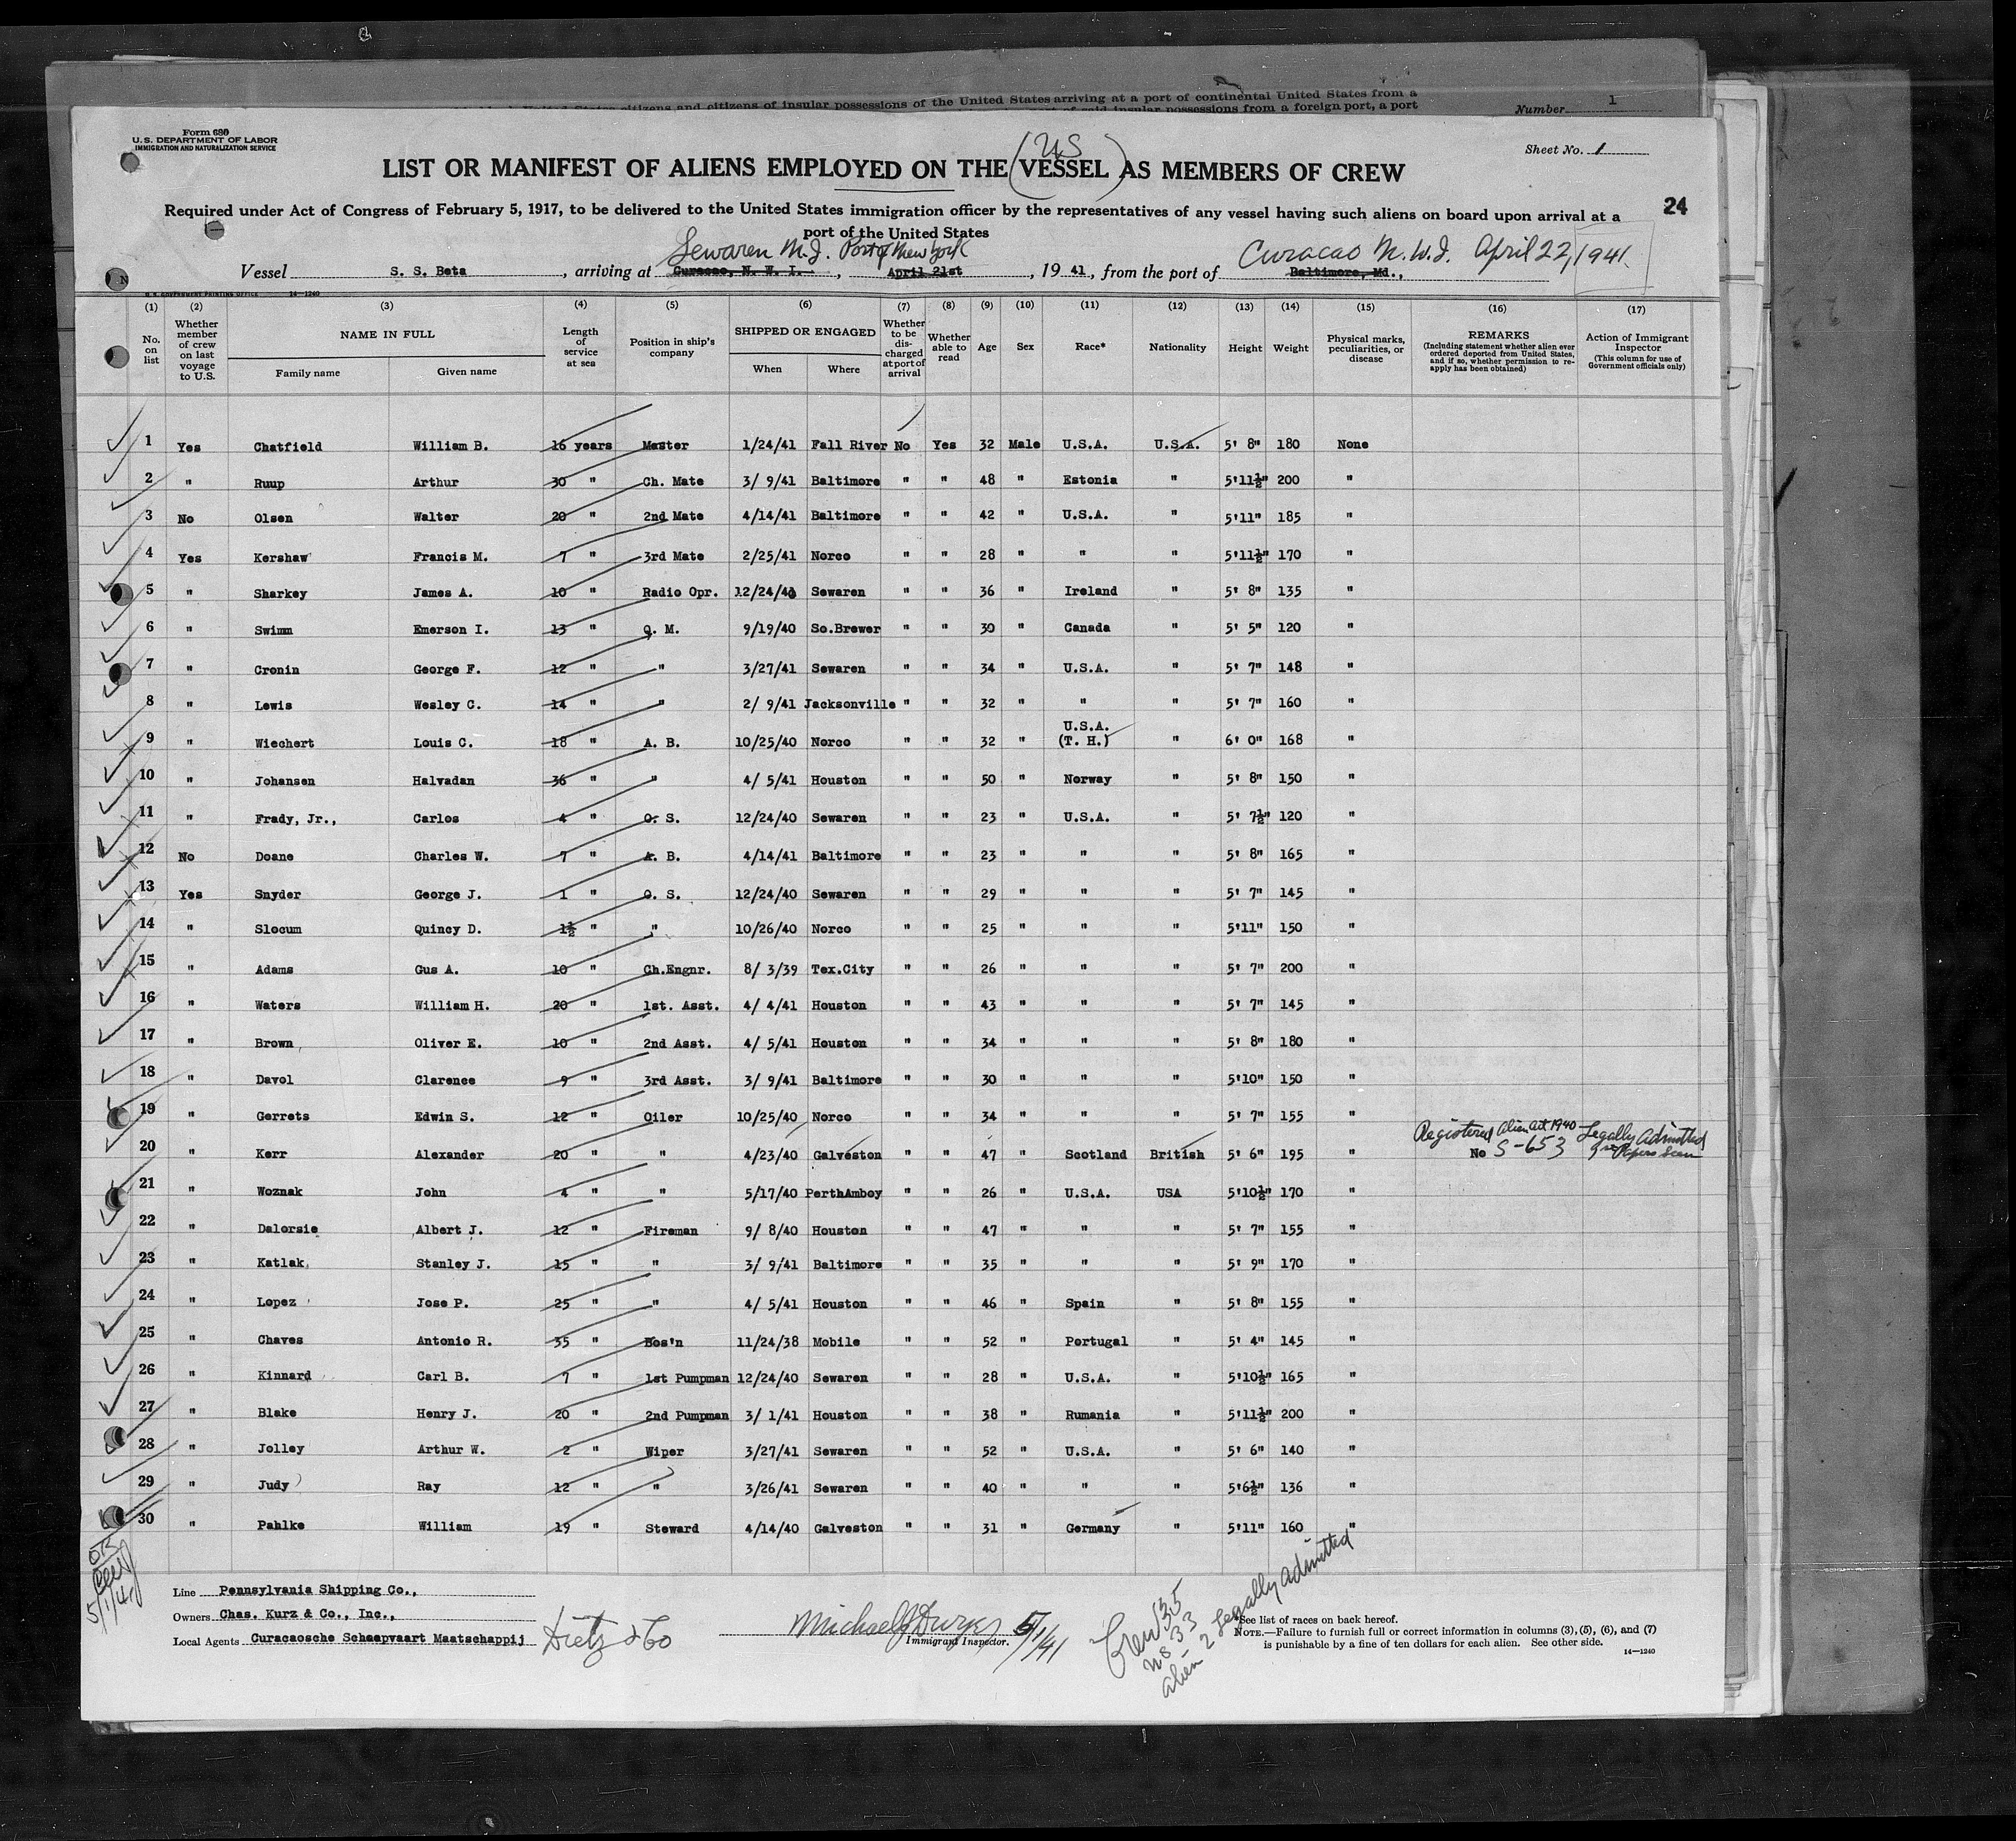 United States citizens and citizens of insular possessions of the United States arriving at a port of continental United States from a
port of said insular possessions from a foreign port, a port
Number 1
Form 680
U.S. DEPARTMENT OF LABOR
IMMIGRATION AND NATURALIZATION SERVICE
Sheet No. 1
US
LIST OR MANIFEST OF ALIENS EMPLOYED ON THE (VESSEL) AS MEMBERS OF CREW
Required under Act of Congress of February 5, 1917, to be delivered to the United States immigration officer by the representatives of any vessel having such aliens on board upon arrival at a
port of the United States
24
Sewaren N.J. Port of New York Curacao N.W.I. April 22, 1941
Vessel S. S. Beta, arriving at Curacao, N. W. I., April 21st, 1941, from the port of Baltimore, Md.,
U. S. GOVERNMENT PRINTING OFFICE 14-1240
(1) (2) (3) (4) (5) (6) (7) (8) (9) (10) (11) (12) (13) (14) (15) (16) (17)
No. on list
Whether member of crew on last voyage to U.S.
NAME IN FULL
Family name Given name
Length of service at sea
Position in ship's company
SHIPPED OR ENGAGED
When Where
Whether to be discharged at port of arrival
Whether able to read
Age
Sex
Race*
Nationality
Height
Weight
Physical marks, peculiarities, or disease
REMARKS
(Including statement whether alien ever ordered deported from United States, and if so, whether permission to reapply has been obtained)
Action of Immigrant Inspector
(This column for use of Government officials only)
1 Yes Chatfield William B. 16 years Master 1/24/41 Fall River No Yes 32 Male U.S.A. U.S.A. 5' 8" 180 None
2 " Ruup Arthur 30 " Ch. Mate 3/ 9/41 Baltimore " " 48 " Estonia " 5'11½" 200 "
3 No Olsen Walter 20 " 2nd Mate 4/14/41 Baltimore " " 42 " U.S.A. " 5'11" 185 "
4 Yes Kershaw Francis M. 7 " 3rd Mate 2/25/41 Norco " " 28 " " " 5'11½" 170 "
5 " Sharkey James A. 10 " Radio Opr. 12/24/40 Sewaren " " 36 " Ireland " 5' 8" 135 "
6 " Swimm Emerson I. 13 " Q. M. 9/19/40 So.Brewer " " 30 " Canada " 5' 5" 120 "
7 " Cronin George F. 12 " " 3/27/41 Sewaren " " 34 " U.S.A. " 5' 7" 148 "
8 " Lewis Wesley C. 14 " " 2/ 9/41 Jacksonville " " 32 " " " 5' 7" 160 "
9 " Wiechert Louis C. 18 " A. B. 10/25/40 Norco " " 32 " U.S.A. (T. H.) " 6' 0" 168 "
10 " Johansen Halvadan 36 " " 4/ 5/41 Houston " " 50 " Norway " 5' 8" 150 "
11 " Frady, Jr., Carlos 4 " O. S. 12/24/40 Sewaren " " 23 " U.S.A. " 5' 7½" 120 "
12 No Doane Charles W. 7 " A. B. 4/14/41 Baltimore " " 23 " " " 5' 8" 165 "
13 Yes Snyder George J. 1 " O. S. 12/24/40 Sewaren " " 29 " " " 5' 7" 145 "
14 " Slocum Quincy D. 1½ " " 10/26/40 Norco " " 25 " " " 5'11" 150 "
15 " Adams Gus A. 10 " Ch.Engnr. 8/ 3/39 Tex.City " " 26 " " " 5' 7" 200 "
16 " Waters William H. 20 " 1st. Asst. 4/ 4/41 Houston " " 43 " " " 5' 7" 145 "
17 " Brown Oliver E. 10 " 2nd Asst. 4/ 5/41 Houston " " 34 " " " 5' 8" 180 "
18 " Davol Clarence 9 " 3rd Asst. 3/ 9/41 Baltimore " " 30 " " " 5'10" 150 "
19 " Gerrets Edwin S. 12 " Oiler 10/25/40 Norco " " 34 " " " 5' 7" 155 "
Registered Alien Act 1940 Legally Admitted
20 " Kerr Alexander 20 " " 4/23/40 Galveston " " 47 " Scotland British 5' 6" 195 " No S-653 Papers Seen
21 " Woznak John 4 " " 5/17/40 PerthAmboy " " 26 " U.S.A. USA 5'10½" 170 "
22 " Dalorsie Albert J. 12 " Fireman 9/ 8/40 Houston " " 47 " " " 5' 7" 155 "
23 " Katlak Stanley J. 15 " " 3/ 9/41 Baltimore " " 35 " " " 5' 9" 170 "
24 " Lopez Jose P. 25 " " 4/ 5/41 Houston " " 46 " Spain " 5' 8" 155 "
25 " Chaves Antonio R. 35 " Bos'n 11/24/38 Mobile " " 52 " Portugal " 5' 4" 145 "
26 " Kinnard Carl B. 7 " 1st Pumpman 12/24/40 Sewaren " " 28 " U.S.A. " 5'10½" 165 "
27 " Blake Henry J. 20 " 2nd Pumpman 3/ 1/41 Houston " " 38 " Rumania " 5'11½" 200 "
28 " Jolley Arthur W. 2 " Wiper 3/27/41 Sewaren " " 52 " U.S.A. " 5' 6" 140 "
29 " Judy Ray 12 " " 3/26/41 Sewaren " " 40 " " " 5'6½" 136 "
30 " Pahlke William 19 " Steward 4/14/40 Galveston " " 31 " Germany " 5'11" 160 "
OK
5/1/41
Line Pennsylvania Shipping Co.,
Owners Chas. Kurz & Co., Inc.,
Local Agents Curacaosche Scheepvaart Maatschappij
Dietz & Co
Michael J Dwyer 5/1/41
Immigrant Inspector.
Crew 35
US 33
alien 2 Legally Admitted
*See list of races on back hereof.
NOTE.—Failure to furnish full or correct information in columns (3), (5), (6), and (7)
is punishable by a fine of ten dollars for each alien. See other side.
14-1240